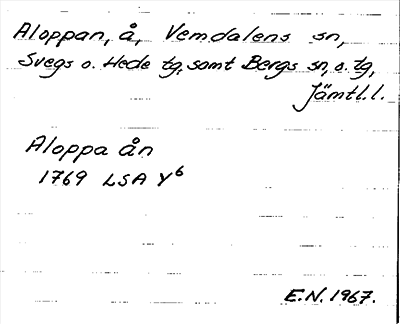 Aloppan, å, Vemdalens sn,
Svegs o. Hede tg, samt Bergs sn, o. tg,
Jämtl.l.
Aloppa ån
1769 LSA Y⁶
E.N. 1967.